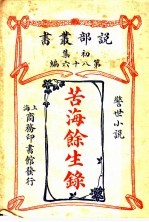 說部叢書
初集
第八十六編
警世小說
苦海餘生錄
上海商務印書館發行